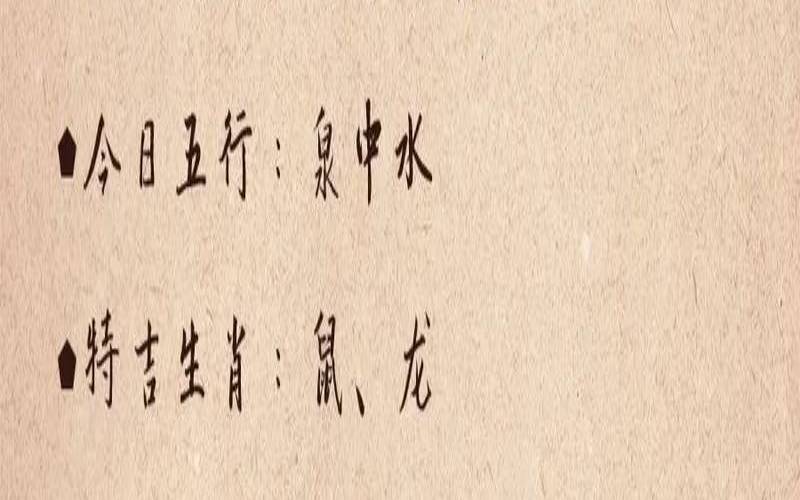 ⬟今日五行：泉中水
⬟特吉生肖：鼠、龙